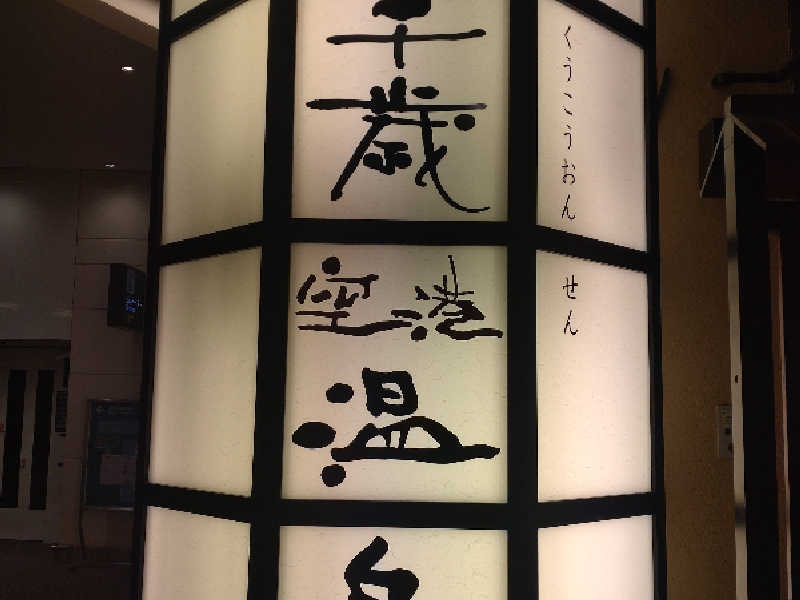 千歳
空港
温
くうこうおんせん